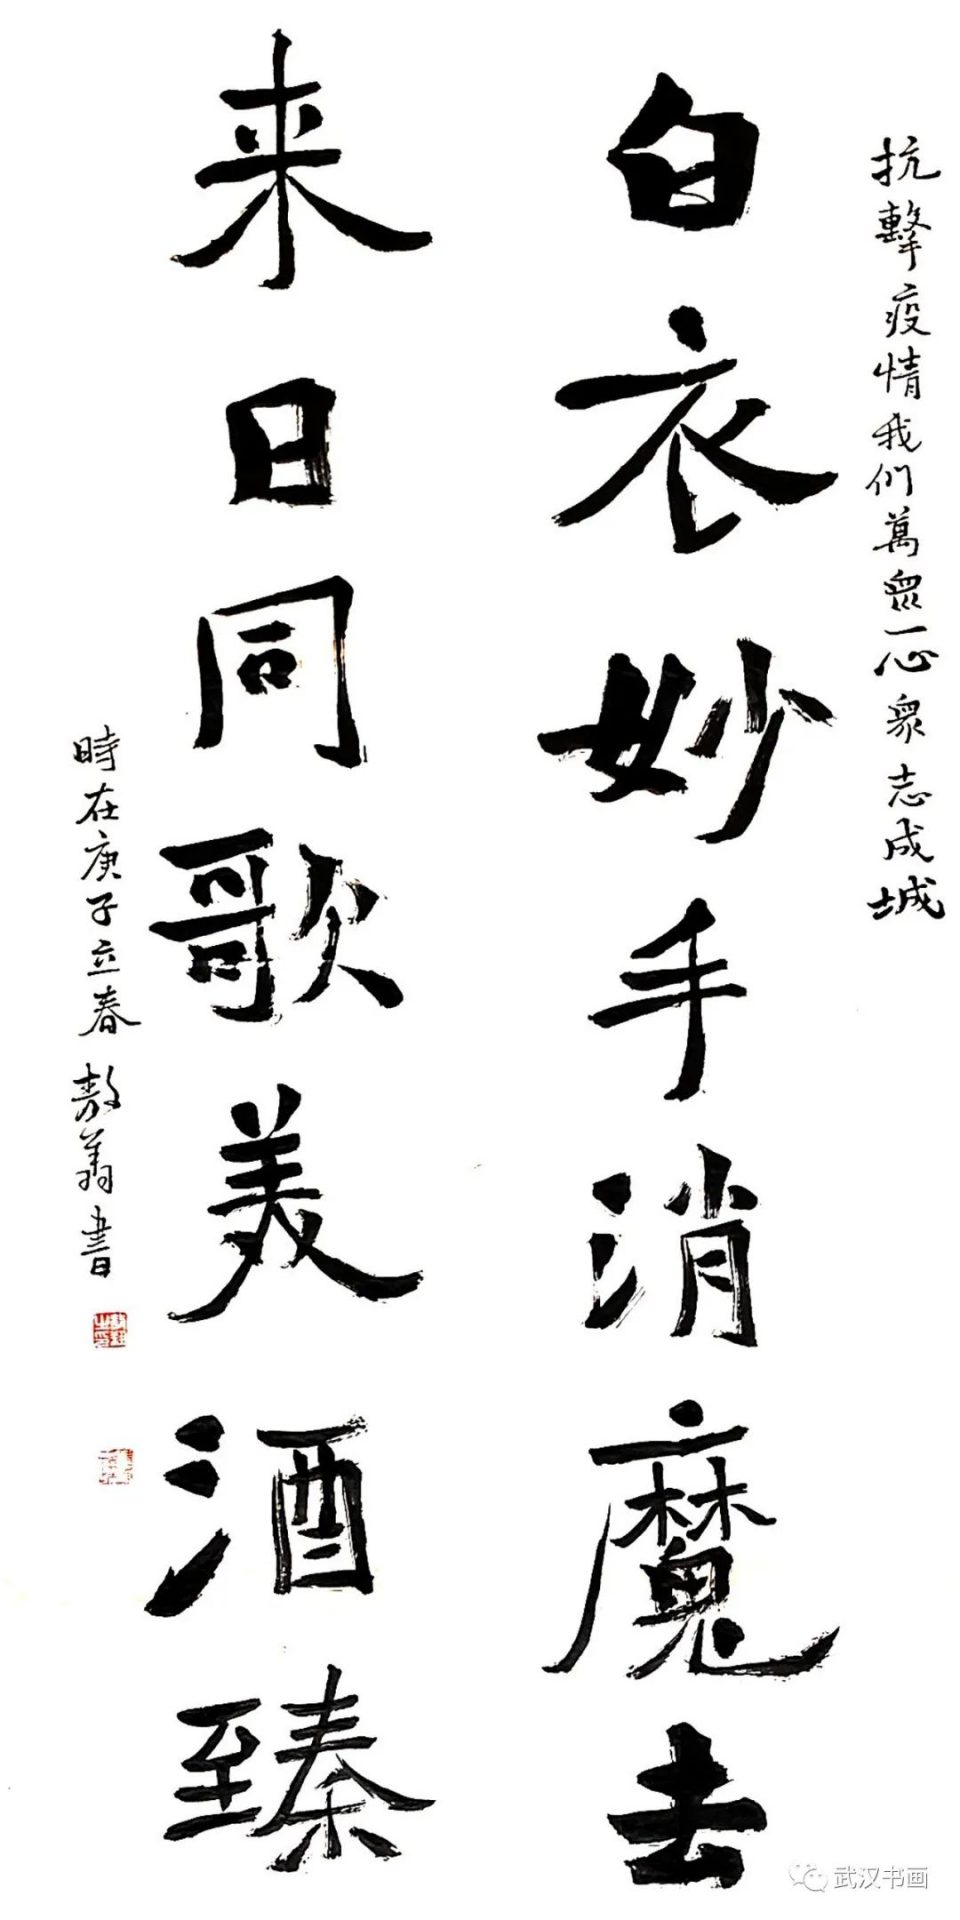 抗擊疫情我们萬眾一心衆志成城
白衣妙手消魔去
来日同歌美酒臻
時在庚子立春敖翁書
武汉书画